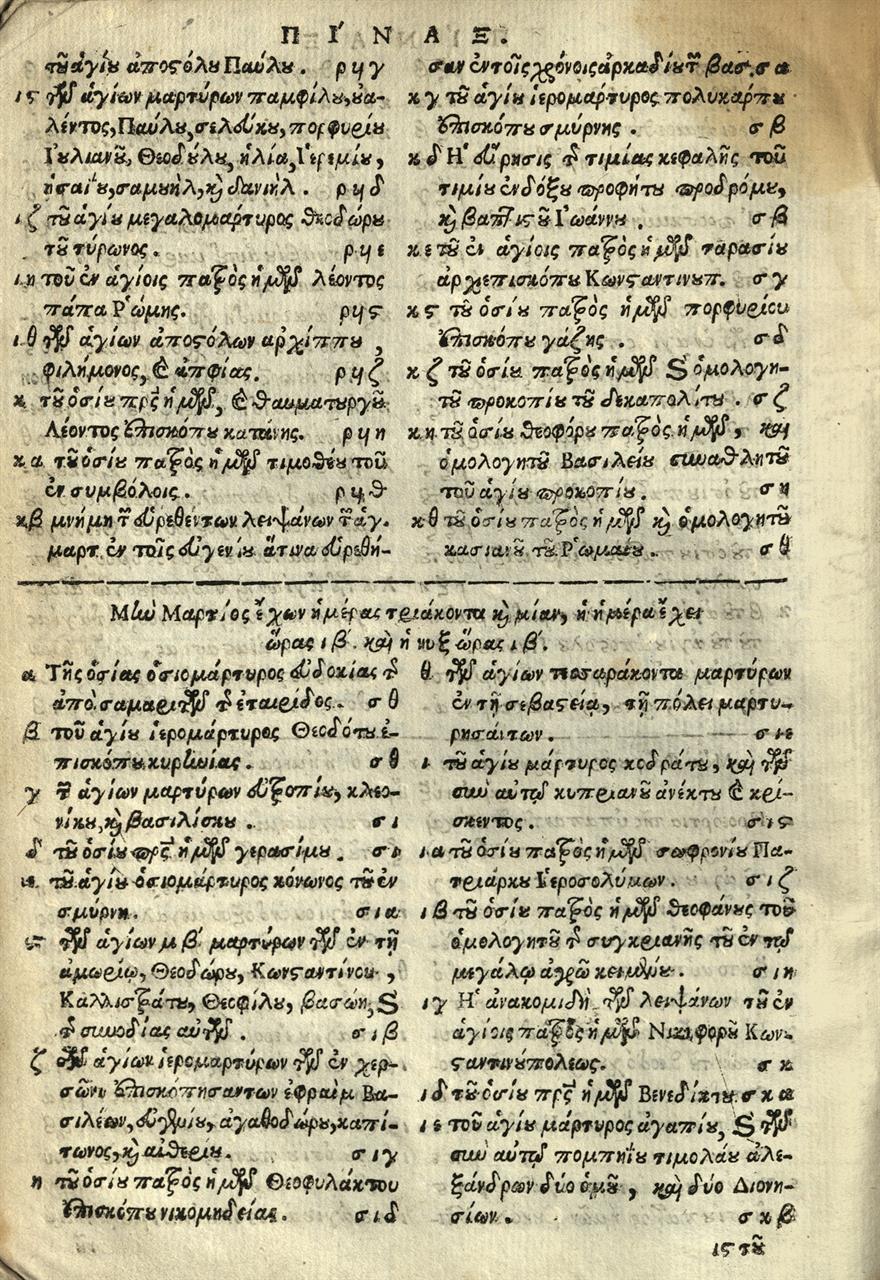 ΠΙ´ΝΑΞ.
τοῦ ἁγίου ἀποστόλου Παύλου. ρϟγ
ις τῶν ἁγίων μαρτύρων παμφίλου, οὐα-
λέντος, Παύλου, σελεύκου, πορφυρίου
Ἰουλιανοῦ, Θεοδούλου, ἠλία, Ἱερεμίου,
ἠσαΐου, σαμουὴλ, καὶ δανιὴλ. ρϟδ
ιζ τοῦ ἁγίου μεγαλομάρτυρος θεοδώρου
τοῦ τύρωνος. ρϟε
ιη τοῦ ἐν ἁγίοις πατρὸς ἡμῶν λέοντος
πάπα Ῥώμης. ρϟς
ιθ τῶν ἁγίων ἀποστόλων ἀρχίππου,
φιλήμονος, καὶ ἀπφίας. ρϟζ
κ τοῦ ὁσίου πρς ἡμῶν, καὶ θαυματουργοῦ
Λέοντος ἐπισκόπου κατάνης. ρϟη
κα τοῦ ὁσίου πατρὸς ἡμῶν τιμοθέου τοῦ
ἐν συμβόλοις. ρϟθ
κβ μνήμη τῶν εὑρεθέντων λειψάνων τῶν ἁγ.
μαρτ. ἐν τοῖς εὐγενίου ἅτινα εὑρεθή-
σαν ἐν τοῖς χρόνοις ἀρκαδίου τοῦ βασ. σα
κγ τοῦ ἁγίου ἱερομάρτυρος πολυκάρπου
ἐπισκόπου σμύρνης. σβ
κδ Ἡ εὕρησις τῆς τιμίας κεφαλῆς τοῦ
τιμίου ἐνδόξου προφήτου προδρόμου,
καὶ βαπτιστοῦ Ἰωάννου. σβ
κε τοῦ ἐν ἁγίοις πατρὸς ἡμῶν ταρασίου
ἀρχεπισκόπου Κωνσταντινουπ. σγ
κς τοῦ ὁσίου πατρὸς ἡμῶν πορφυρίου
ἐπισκόπου γάζης. σδ
κζ τοῦ ὁσίου πατρὸς ἡμῶν καὶ ὁμολογη-
τοῦ προκοπίου τοῦ δεκαπολίτου. σζ
κη τοῦ ὁσίου θεοφόρου πατρὸς ἡμῶν, καὶ
ὁμολογητοῦ Βασιλείου συναθλητοῦ
τοῦ ἁγίου προκοπίου. ση
κθ τοῦ ὁσίου πατρὸς ἡμῶν καὶ ὁμολογητοῦ
κασιανοῦ τοῦ Ῥωμαίου. σθ
Μὴν Μαρτίος ἔχων ἡμέρας τριάκοντα καὶ μίαν, ἡ ἡμέρα ἔχει
ὥρας ιβ´. καὶ ἡ νυξ ὥρας ιβ´.
α Τῆς ὁσίας ὁσιομάρτυρος εὐδοκίας τῆς
ἀπὸ σαμαριτῶν τῆς ἑταιρίδος. σθ
β τοῦ ἁγίου ἱερομάρτυρος Θεοδότου ἐ-
πισκόπου κυρηνίας. σθ
γ τῶν ἁγίων μαρτύρων εὐτροπίου, κλεο-
νίκου, καὶ βασιλίσκου. σι
δ τοῦ ὁσίου πρς ἡμῶν γερασίμου. σι
ε τοῦ ἁγίου ὁσιομάρτυρος κόνωνος τοῦ ἐν
σμύρνη. σια
ς τῶν ἁγίων μβ´ μαρτύρων τῶν ἐν τῇ
ἀμωρίῳ, Θεοδώρου, Κωνσταντίνου,
Καλλιστράτου, Θεοφίλου, βασώη, καὶ
τῆς συνοδίας αὐτῶν. σιβ
ζ τῶν ἁγίων ἱερομαρτύρων τῶν ἐν χερ-
σῶνι ἐπισκόπησαντων ἐφραὶμ Βα-
σιλέων, εὐγενίου, ἀγαθοδώρου, καπί-
τωνος, καὶ αἰθερίου. σιγ
η τοῦ ὁσίου πατρὸς ἡμῶν Θεοφυλάκτου
ἐπισκόπου νικομηδείας. σιδ
θ τῶν ἁγίων τεσσαράκοντα μαρτύρων
ἐν τῇ σεβαστείᾳ, τῇ πόλει μαρτυ-
ρησάντων. σιε
ι τοῦ ἁγίου μάρτυρος κοδράτου, καὶ τῶν
σὺν αὐτῷ κυπριανοῦ ἀνέκτου καὶ κρί-
σκεντος. σις
ια τοῦ ὁσίου πατρὸς ἡμῶν σωφρονίου Πα-
τριάρκου Ἱεροσολύμων. σιζ
ιβ τοῦ ὁσίου πατρὸς ἡμῶν θεοφάνους τοῦ
ὁμολογητοῦ τῆς συγκριανῆς τοῦ ἐν τῷ
μεγάλῳ ἀγρῶ κειμένου. σιη
ιγ Ἡ ἀνακομιδὴ τῶν λειψάνων τοῦ ἐν
ἁγίοις πατρὸς ἡμῶν Νικιφόρου Κων-
σταντινουπόλεως. σκ
ιδ τοῦ ὁσίου πρς ἡμῶν Βενεδίκτου. σκα
ιε τοῦ ἁγίου μάρτυρος ἀγαπίου, καὶ τῶν
σὺν αὐτῷ πομπηΐου τιμολάου ἀλε-
ξάνδρων δύο ὁμοῦ, καὶ δύο Διονη-
σίων. σκβ
ις τοῦ